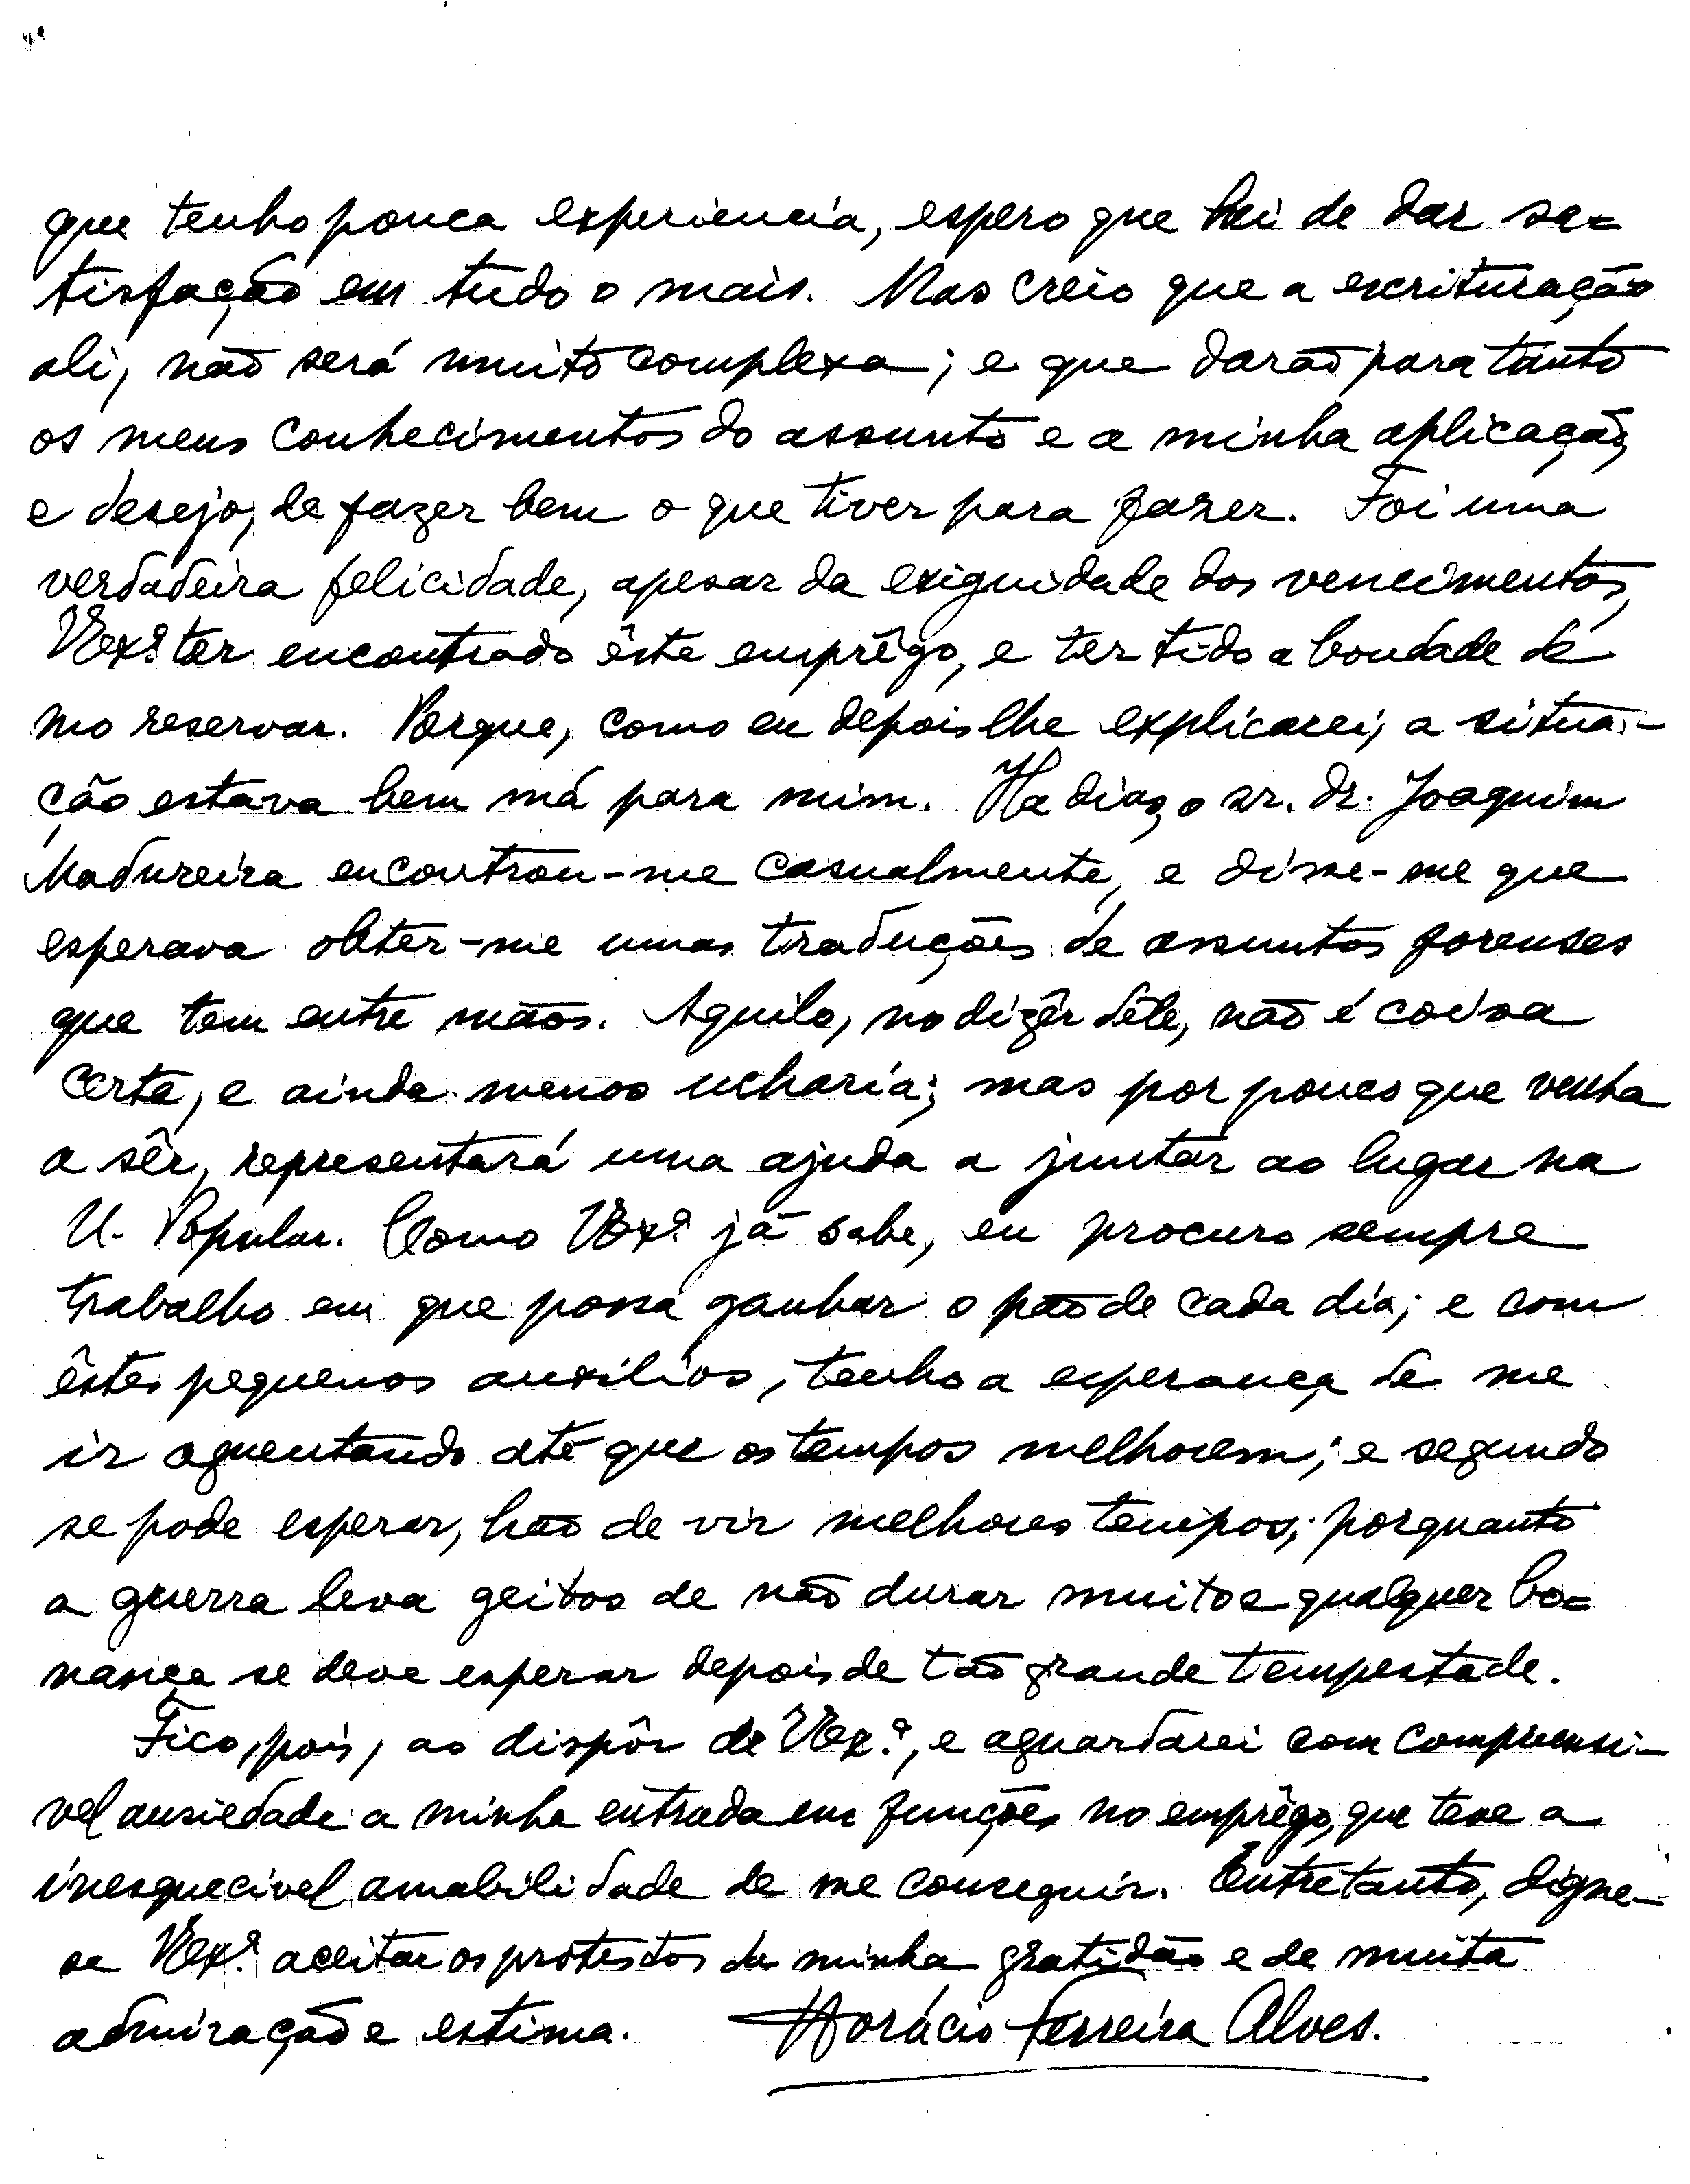 que tenho pouca experiencia, espero que hei de dar sa=
tisfação em tudo o mais. Mas creio que a escrituração
ali, não será muito complexa; e que darão para tanto
os meus conhecimentos do assunto e a minha aplicação,
e desejo, de fazer bem o que tiver para fazer. Foi uma
verdadeira felicidade, apesar da exiguidade dos vencimentos,
VExª ter encontrado êste emprêgo, e ter tido a bondade de
mo reservar. Porque, como eu depois lhe explicarei, a situa-
ção estava bem má para mim. Ha dias, o sr. dr. Joaquim
Madureira encontrou-me casualmente, e disse-me que
esperava obter-me umas traduções de assuntos forenses
que tem entre mãos. Aquilo, no dizêr dêle, não é coisa
certa, e ainda menos ucharia; mas por pouco que venha
a sêr, representará uma ajuda a juntar ao lugar na
U. Popular. Como VExª já sabe, eu procuro sempre
trabalho em que possa ganhar o pão de cada dia; e com
êstes pequenos auxílios, tenho a esperança de me
ir aguentando até que os tempos melhorem; e segundo
se pode esperar, hão de vir melhores tempos; porquanto
a guerra leva geitos de não durar muito e qualquer bo=
nança se deve esperar depois de tão grande tempestade.
Fico, pois, ao dispôr de VExª, e aguardarei com compreensi-
vel ansiedade a minha entrada em funções no emprêgo, que teve a
inesquecível amabilidade de me conseguir. Entretanto, digne-
se VExª aceitar os protestos da minha gratidão e de muita
admiração e estima. Horácio Ferreira Alves.